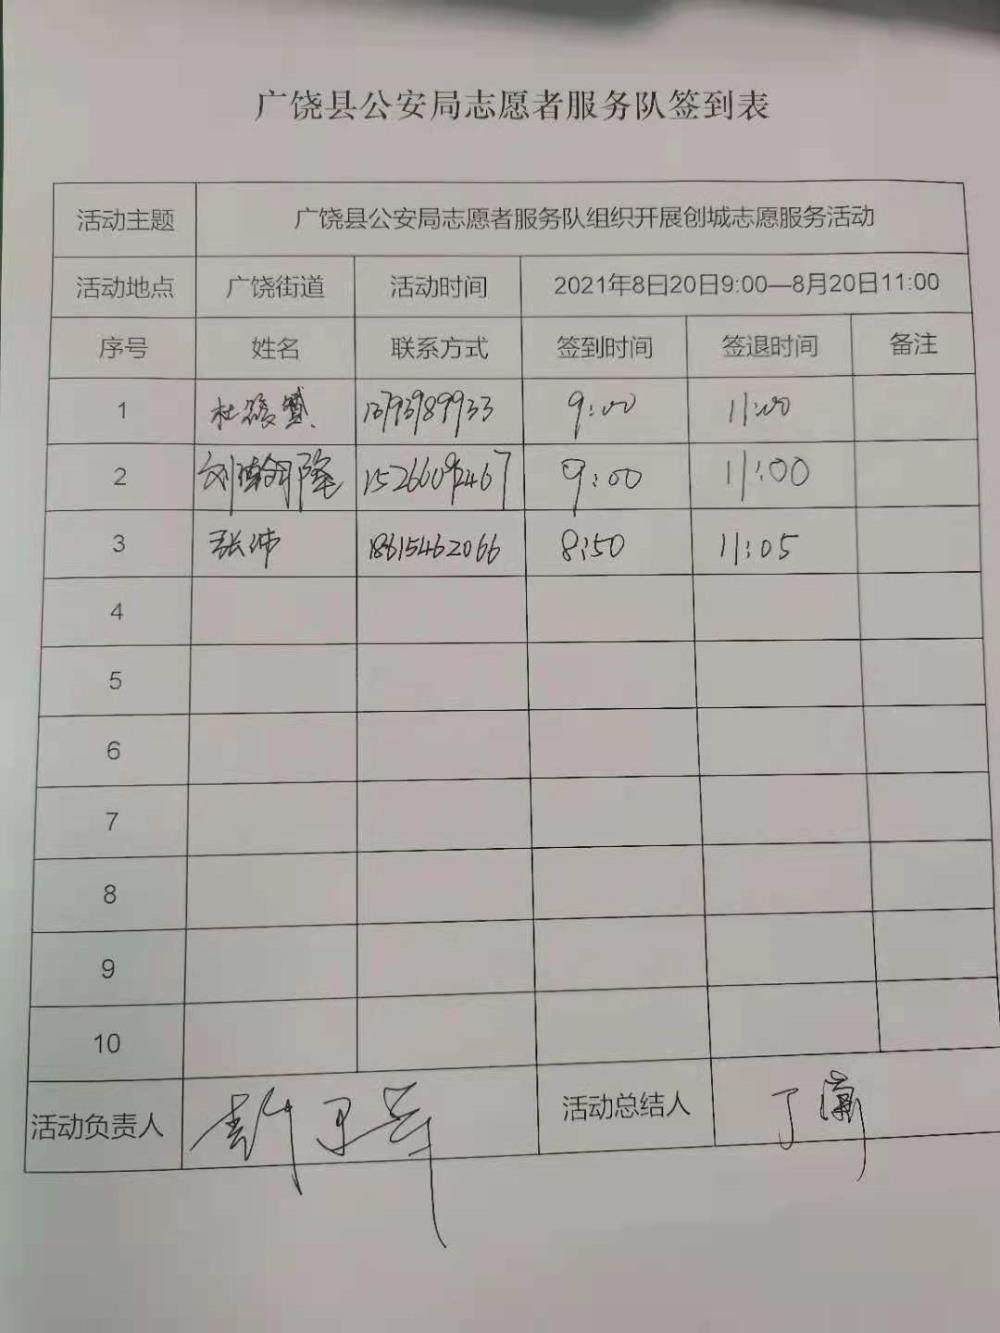 广饶县公安局志愿者服务队签到表
活动主题 广饶县公安局志愿者服务队组织开展创城志愿服务活动
活动地点 广饶街道 活动时间 2021年8日20日9:00—8月20日11:00
序号 姓名 联系方式 签到时间 签退时间 备注
1 杜 13793989933 9:00 11:00
2 刘 隆 15266092467 9:00 11:00
3 张伟 18615462066 8:50 11:05
4
5
6
7
8
9
10
活动负责人 活动总结人 丁